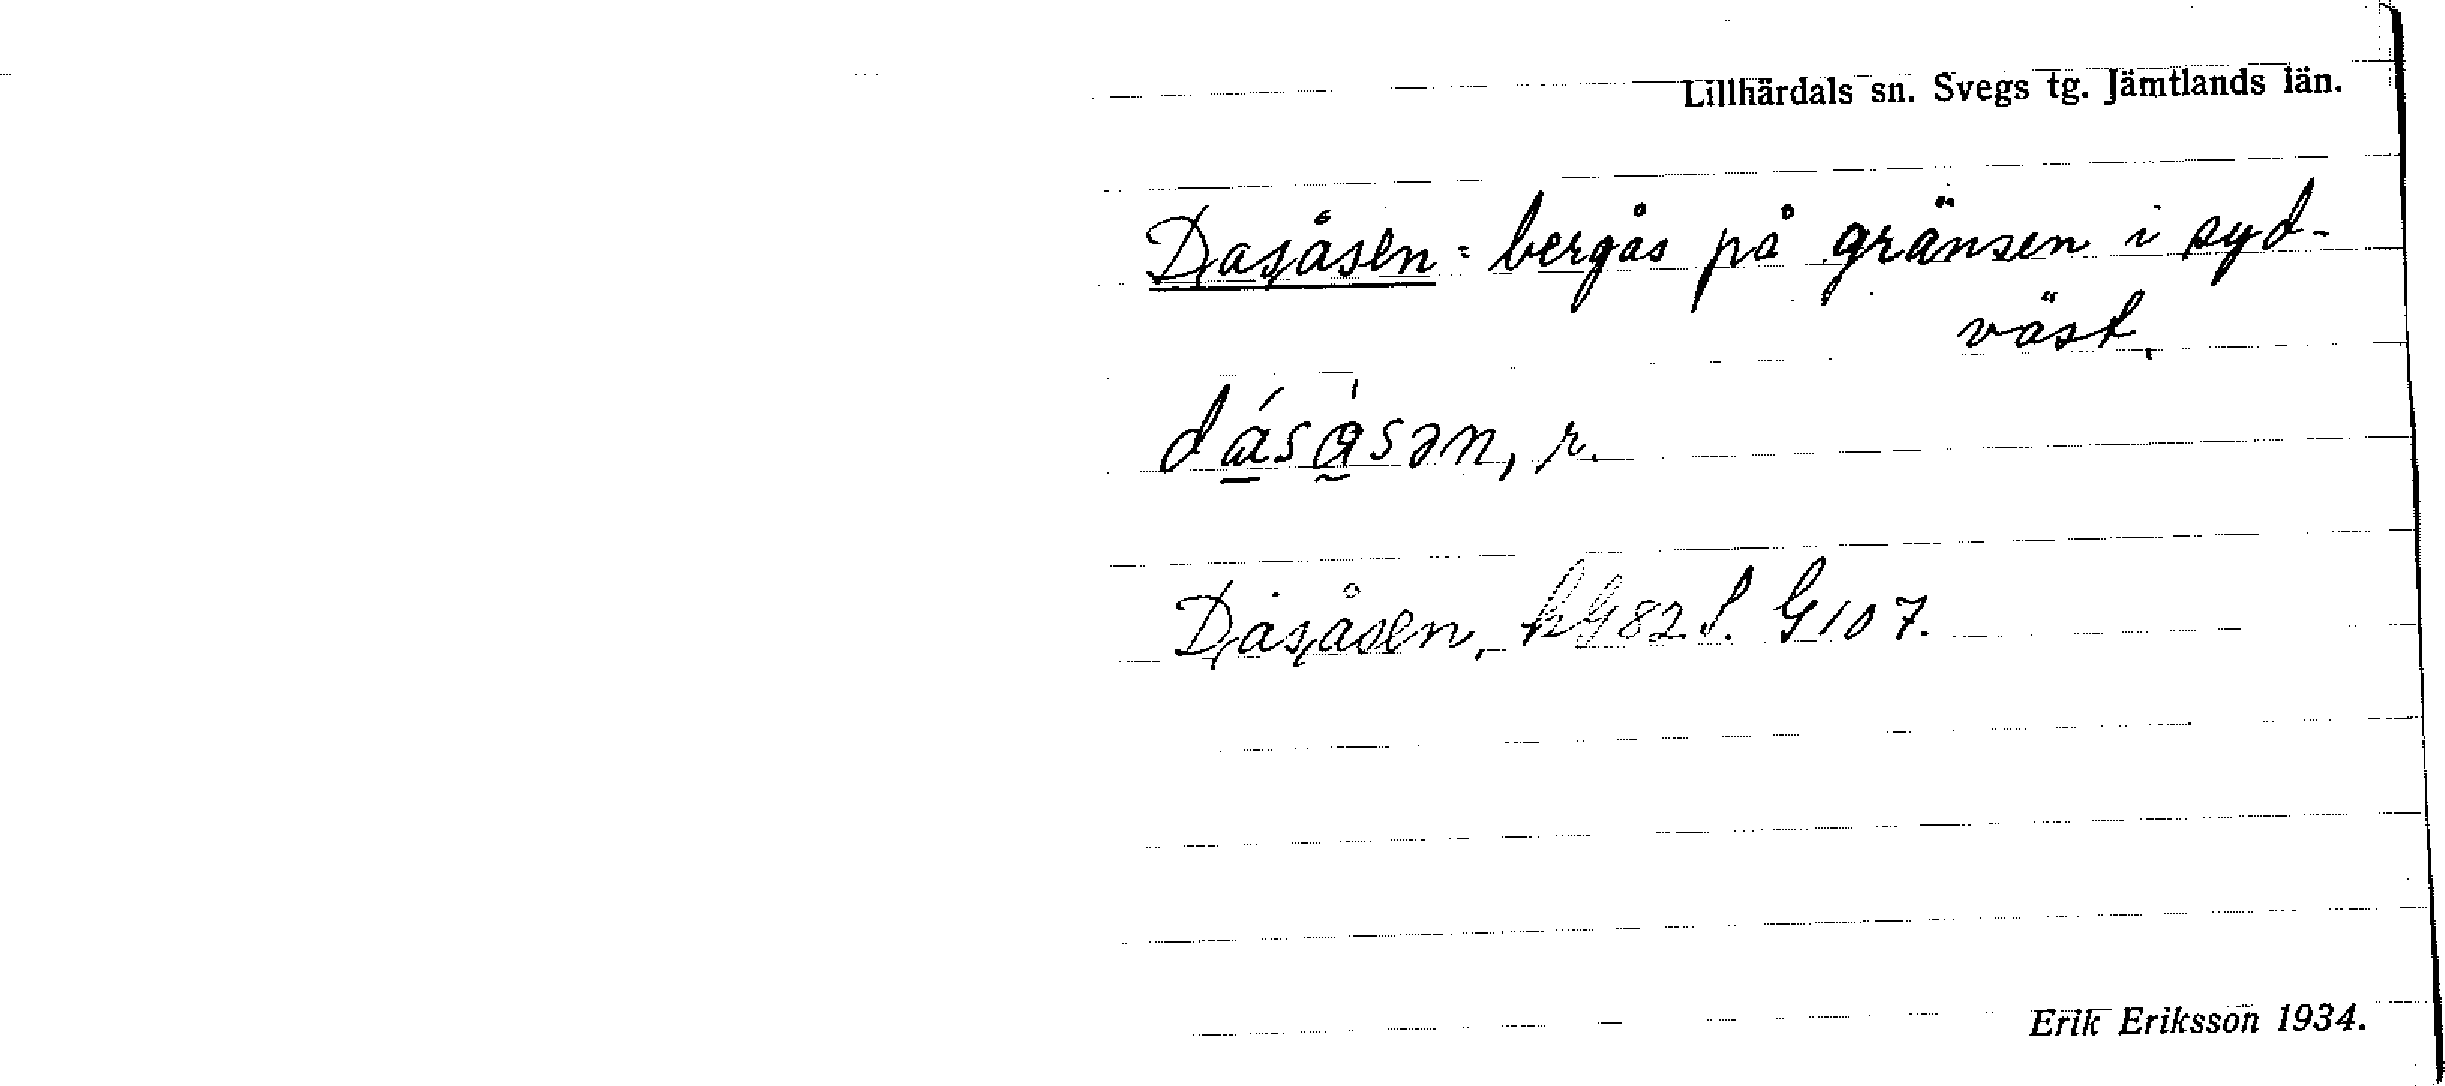 Lillhärdals sn. Svegs tg. Jämtlands län.
Dasåsen = bergås på gränsen i syd-
väst.
dásåsən, r.
Dasåsen, kG82S. G107.
Erik Eriksson 1934.